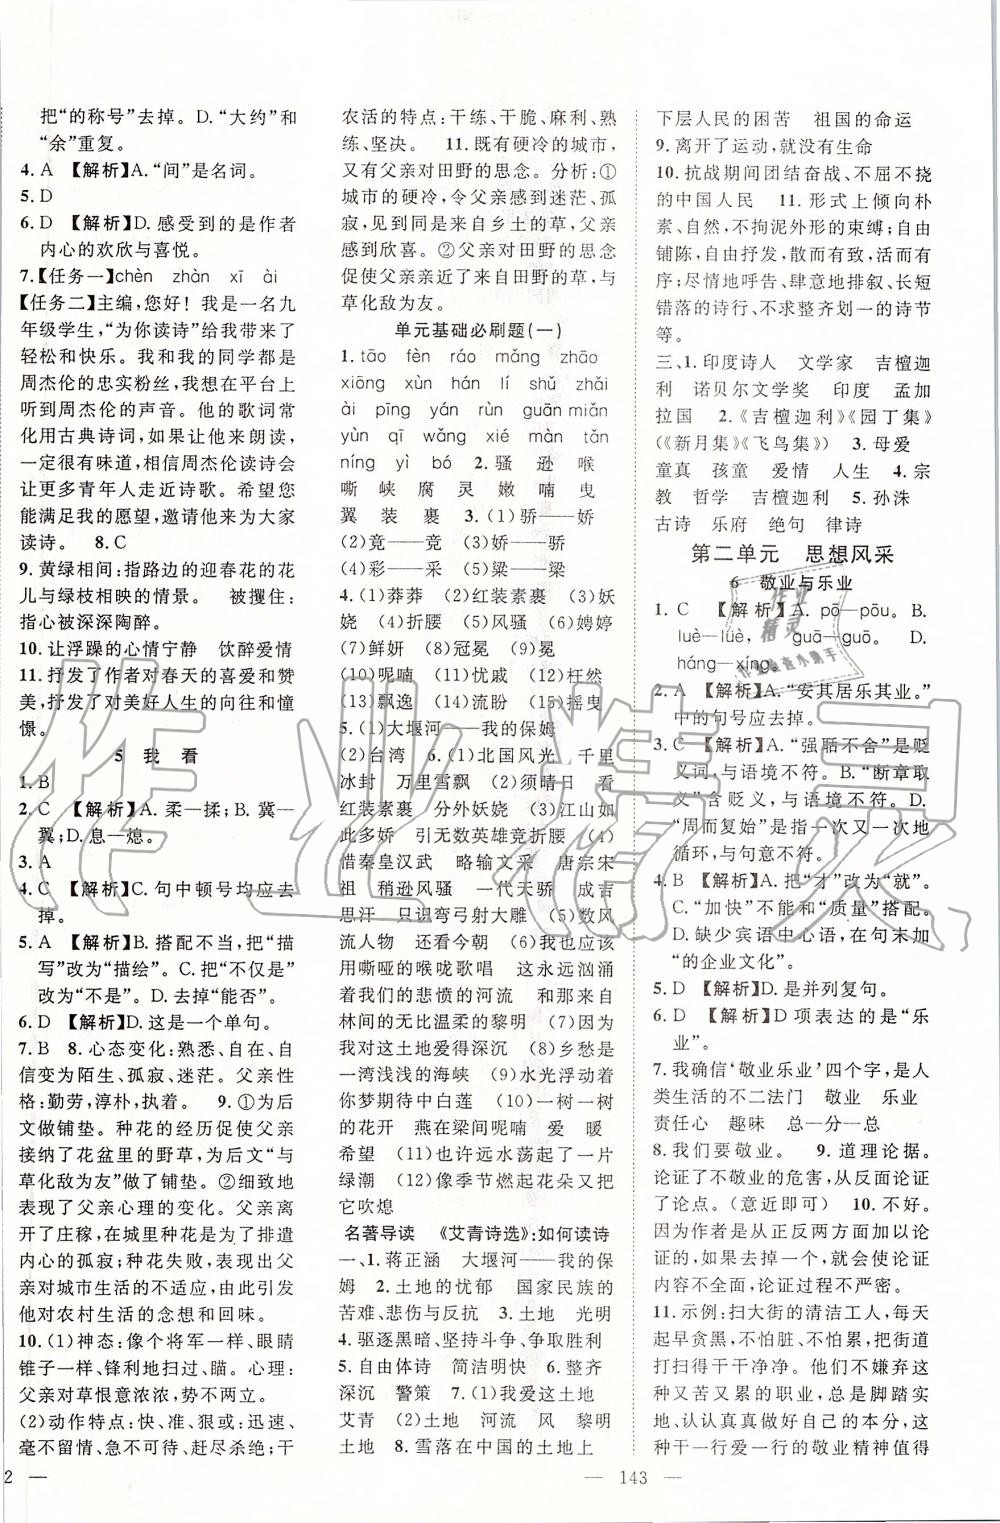 把“的称号”去掉。D.“大约”和
“余”重复。
4.A 【解析】A.“间”是名词。
5.D
6.D 【解析】D.感受到的是作者
内心的欢欣与喜悦。
7.【任务一】chèn zhàn xī ài
【任务二】主编,您好!我是一名九
年级学生,“为你读诗”给我带来了
轻松和快乐。我和我的同学都是
周杰伦的忠实粉丝,想在平台上
听到周杰伦的声音。他的歌词常
化用古典诗词,如果让他来朗读,
一定很有味道,相信周杰伦读诗会
让更多青年人走近诗歌。希望您
能满足我的愿望,邀请他来为大家
读诗。 8.C
9.黄绿相间:指路边的迎春花的花
儿与绿枝相映的情景。 被攫住:
指心被深深陶醉。
10.让浮躁的心情宁静 饮醉爱情
11.抒发了作者对春天的喜爱和赞
美,抒发了对美好人生的向往和憧
憬。
5 我 看
1.B
2.C 【解析】A.柔—揉;B.冀—
翼;D.息—熄。
3.A
4.C 【解析】C.句中顿号均应去
掉。
5.A 【解析】B.搭配不当,把“描
写”改为“描绘”。C.把“不仅是”
改为“不是”。D.去掉“能否”。
6.D 【解析】D.这是一个单句。
7.B 8.心态变化:熟悉、自在、自
信变为陌生、孤寂、迷茫。父亲性
格:勤劳,淳朴,执着。 9.①为后
文做铺垫。种花的经历促使父亲
接纳了花盆里的野草,为后文“与
草化敌为友”做了铺垫。②细致地
表现了父亲心理的变化。父亲离
开了庄稼,在城里种花是为了排遣
内心的孤寂;种花失败,表现出父
亲对城市生活的不适应,由此引发
他对农村生活的念想和回味。
10.(1)神态:像个将军一样、眼睛
锥子一样、锋利地扫过、瞄。心理:
父亲对草恨意浓浓,势不两立。
(2)动作特点:快、准、狠或:迅速、
毫不留情、急不可待、赶尽杀绝;干
2
农活的特点:干练、干脆、麻利、熟
练、坚决。 11.既有硬冷的城市,
又有父亲对田野的思念。分析:①
城市的硬冷,令父亲感到迷茫、孤
寂,见到同来自乡土的草,父亲感到
欣喜。②父亲对田野的思念
促使父亲亲近了来自田野的草,与
草化敌为友。
单元基础必刷题(一)
1.tāo fèn ráo mǎng zhāo
xiōng xùn hán lí shǔ zhǎi
ài pīng yán rùn guān miǎn
yùn qī wǎng xié màn tǎn
níng yì bó 2.骚 逊 喉
嘶 峡 腐 灵 嫩 喃 曳
翼 装 裹 3.(1)骄——娇
(2)竟——竞 (3)洒——撒
(4)彩——采
4.(1)莽莽 (2)红装素裹 (3)妖
娆 (4)折腰 (5)风骚 (6)娉婷
(7)鲜妍 (8)冠冕 (9)冕
(10)呢喃 (11)忧戚 (12)枉然
(13)飘逸 (14)流盼 (15)摇曳
5.(1)大堰河——我的保姆
(2)台湾 6.(1)北国风光 千里
冰封 万里雪飘 (2)须晴日 看
红装素裹 分外妖娆 (3)江山如
此多娇 引无数英雄竞折腰 (4)
惜秦皇汉武 略输文采 唐宗宋
祖 稍逊风骚 一代天骄 成吉
思汗 只识弯弓射大雕 (5)数风
流人物 还看今朝 (6)我也应该
用嘶哑的喉咙歌唱 这永远汹涌
着我们的悲愤的河流 和那来自
林间的无比温柔的黎明 (7)因为
我对这土地爱得深沉 (8)乡愁是
一湾浅浅的海峡 (9)水光浮动着
你梦期待中白莲 (10)一树一树
的花开 燕在梁间呢喃 爱 暖
希望 (11)也许远远地留下一片
蓝影 (12)像季节燃起花朵又把
它吹熄
名著导读 《艾青诗选》:如何读诗
一、1.蒋正涵 大堰河——我的保
姆 2.土地的忧郁 国家民族的
苦难、悲伤与反抗 3.土地 光明
4.驱逐黑暗、坚持斗争、争取胜利
5.自由体诗 简洁明快 6.整齐
深沉 警策 7.(1)我爱这土地
艾青 (2)土地 河流 风 黎明
土地 8.雪落在中国的土地上
— 143 —
下层人民的困苦 祖国的命运
9.离开了运动,就没有生命
10.抗战期间团结奋战、不屈不挠
的中国人民 11.形式上倾向朴
素、自然,不拘泥外形的束缚;自由
铺陈,自由抒发,安排自然,活而有
序;尽情地呼告、肆意的排叙、长短
错落的诗行,不求整齐划一的诗节
等。
三、1.印度诗人 文学家 吉檀迦
利 诺贝尔文学奖 印度 孟加
拉国 2.《吉檀迦利》《园丁集》
(《新月集》《飞鸟集》) 3.母爱
童真 孩童 爱情 人生 4.宗
教 哲学 吉檀迦利 5.孙洙
古诗 乐府 绝句 律诗
第二单元 思想风采
6 敬业与乐业
1.C 【解析】A.pō—pōu。B.
luè—lüè,guā—guō。D.
háng—xíng。
2.A 【解析】A.“安其居乐其业。”
中的句号应去掉。
3.C 【解析】A.“强聒不舍”是贬
义词,与语境不符。B.“断章取
义”含贬义,与语境不符。D.
“周而复始”是指一次又一次地
循环,与句意不符。
4.B 【解析】A.把“才”改为“就”。
C.“加快”不能和“质量”搭配。
D.缺少宾语中心语,在句末加
“的企业文化”。
5.D 【解析】D.是并列复句。
6.D 【解析】D项表达的是“乐
业”。
7.我确信‘敬业乐业’四个字,是人
类生活的不二法门 敬业 乐业
责任心 趣味 总—分—总
8.我们要敬业。 9.道理论据。
论证了不敬业的危害,从反面论证
了论点。(意近即可) 10.不好。
因为作者是从正反两方面加以论
证的,如果去掉任何一方面,论证
内容不全面,论证过程不严密。
11.示例:扫大街的清洁工人,每天
起早贪黑,不怕脏、不怕累,把街道
打扫得干干净净。他们不嫌弃这
又脏又累的职业,总是脚踏实
地、认认真真做自己的本分,这
种干一行爱一行的敬业精神值得
作业精灵